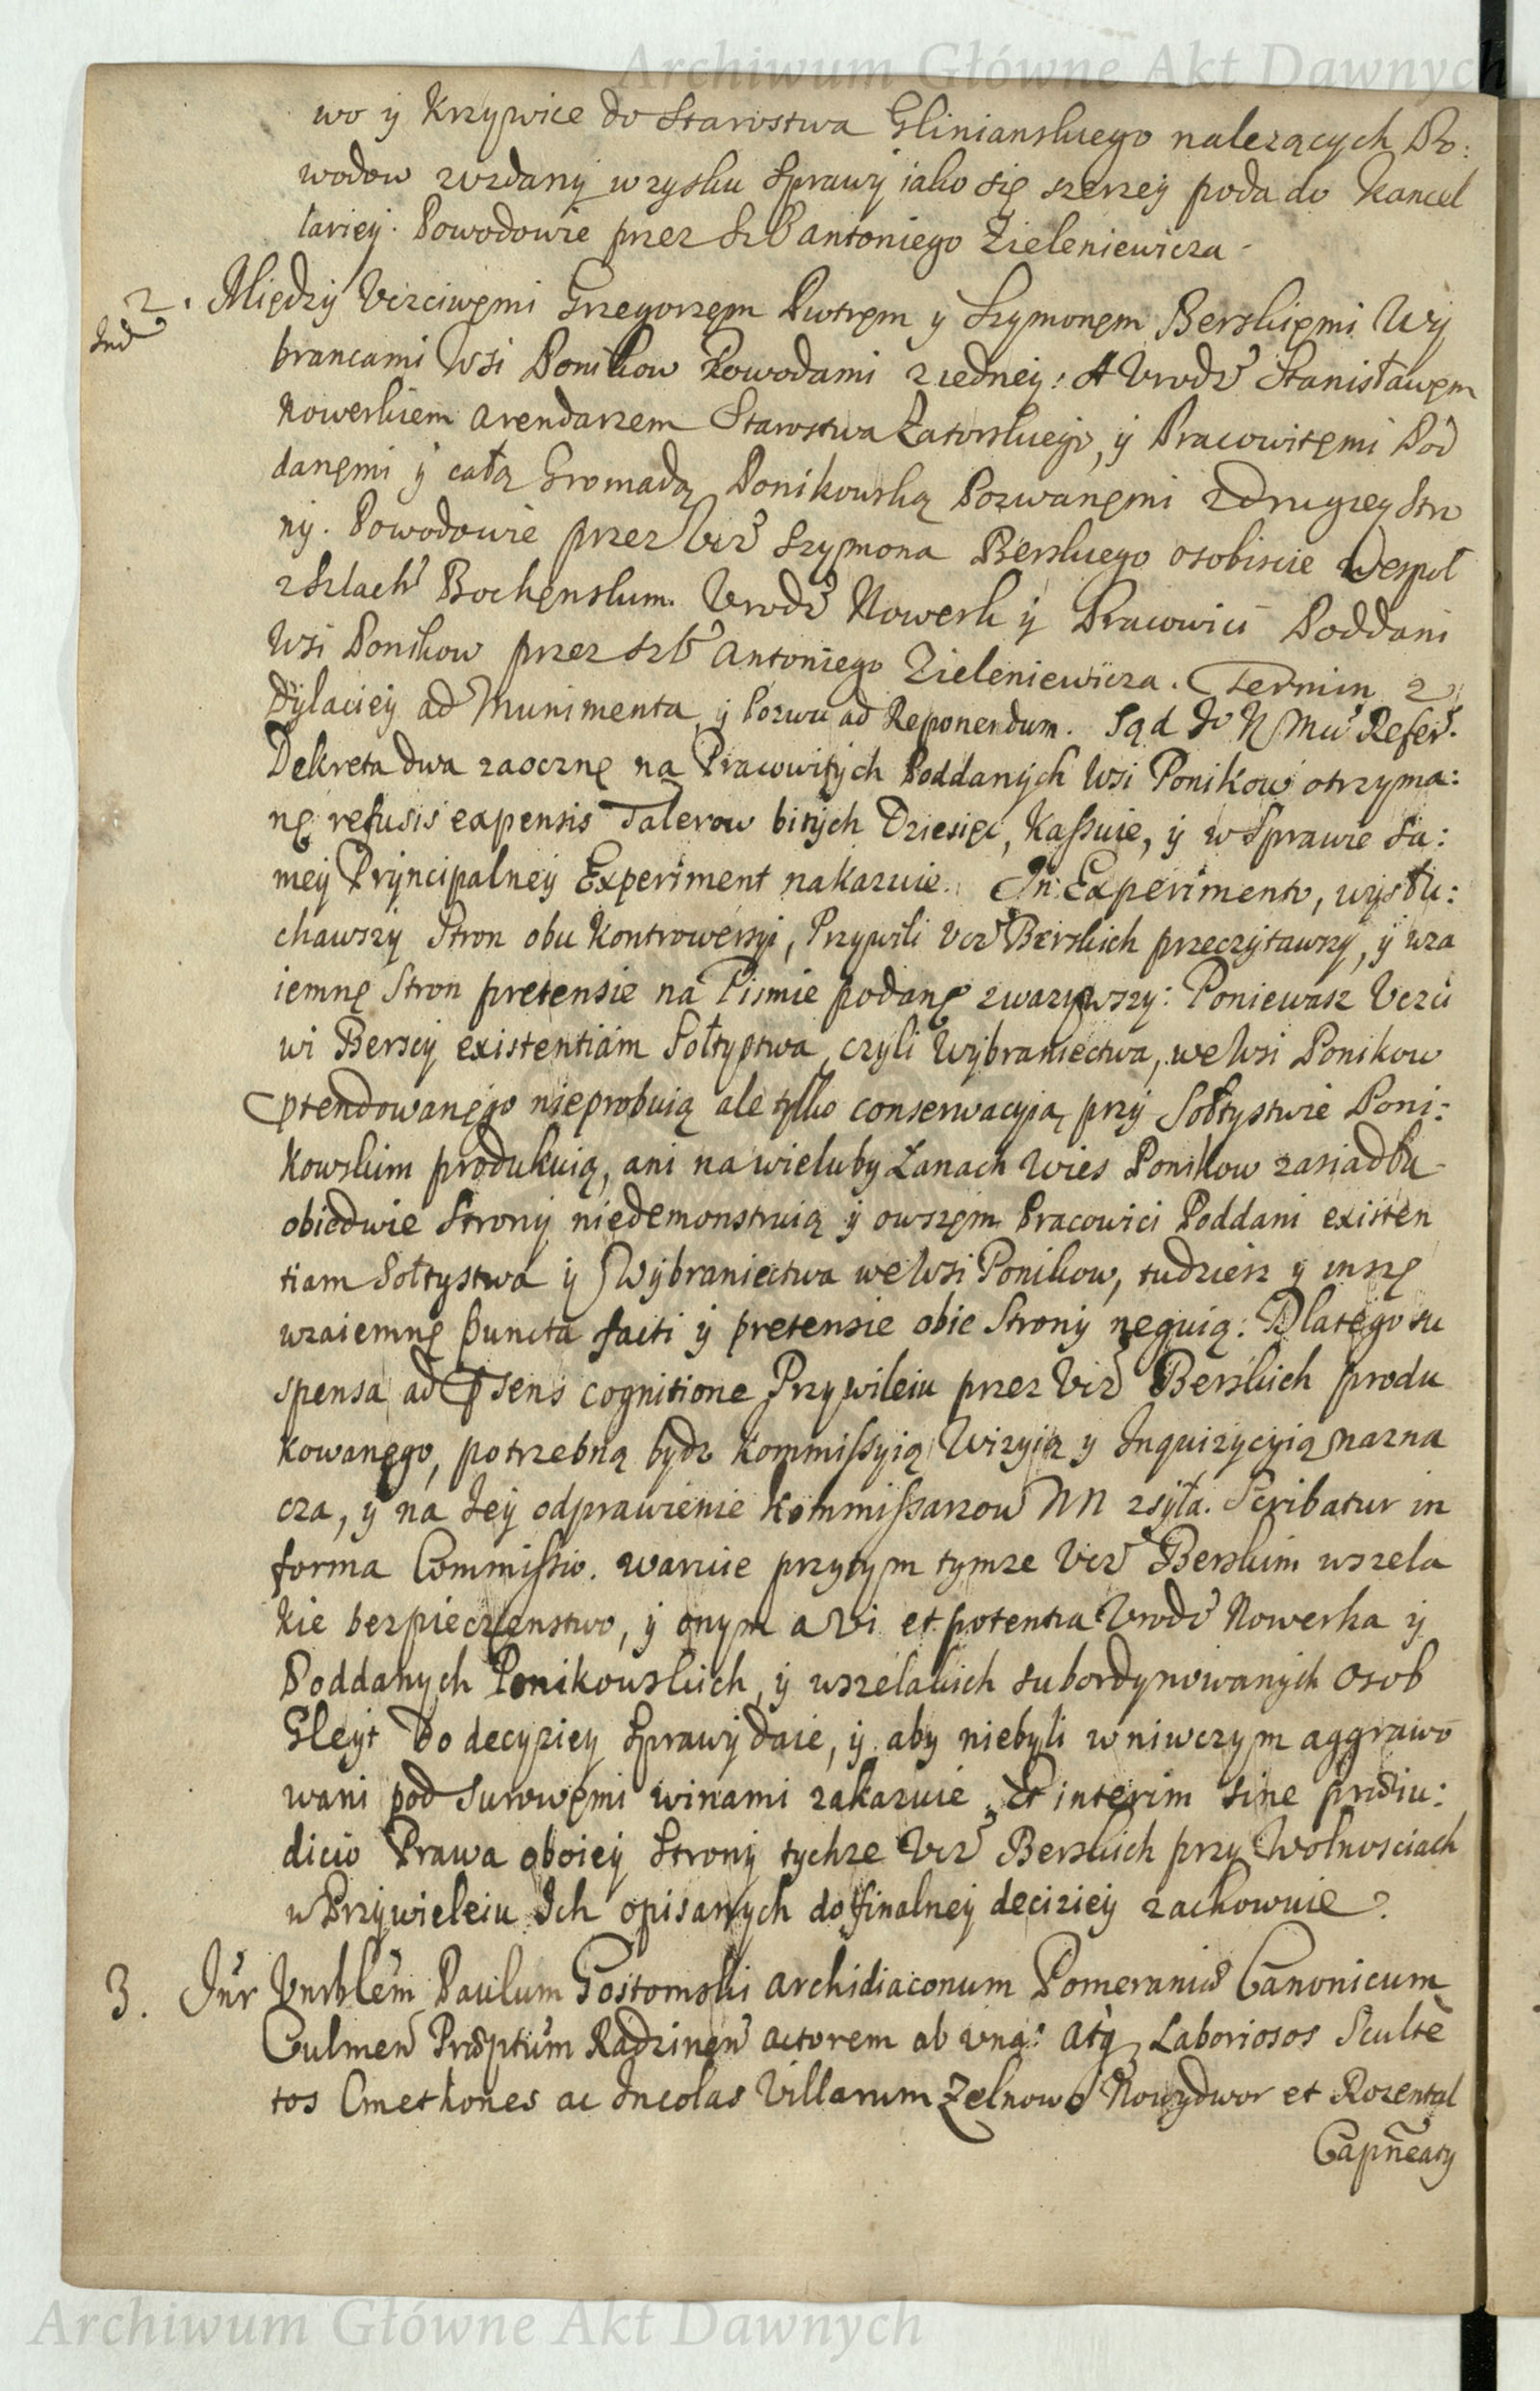 Archiwum Główne Akt Dawnych
wo ÿ Krzywice do Starostwa Glinianskiego nalezących Po:
wodow zwzdany w zysku Sprawÿ iako się szerzeÿ poda do Kancel
lariey. Powodowie przez Sz℔ Antoniego Zieleniewicza.
2. Międzÿ Vczciwęmi Grzegorzęm Piotręm y Szymonęm Berskięmi Wÿ
Ind
brancami Wsi Ponikow Powodami z iedneÿ: A Vrodz Stanisławęm
Nowerkiem Arendarzem Starostwa Zatorskiego, ÿ Pracowitęmi Pod
danęmi ÿ całą Gromadą Ponikowską Pozwanęmi z drugiey Stro
nÿ. Powodowie przez Vcz Szymona Berskiego osobiscie wespoł
z Szlach Bochenskim. Vrodz Nowerk ÿ Pracowici Poddani
Wsi Ponikow przez Sz℔ Antoniego Zieleniewicza. Termin z
Dÿlacieÿ ad Munimenta ÿ Pozwu ad Reponendum. Sąd Jo K Mci Refer.
Dekreta dwa zaocznę na Pracowitÿch Poddanÿch Wsi Ponikow otrzyma:
nę refusis expensis Talerow bitÿch Dziesięc, Kassuie, ÿ w Sprawie Sa:
meÿ Prÿncipalneÿ Experiment nakazuie. In Experimento, wÿsłu:
chawszÿ Stron obu Kontrowersÿi, Przywili Vcz Berskich przeczÿtawszÿ, ÿ wza
iemnę Stron pretensie na Pismie podanę zwazywszy: Poniewasz Vczci
wi Berscy existentiam Sołtystwa, czyli Wÿbraniectwa, we Wsi Ponikow
ptendowanęgo nieprobuią ale tylko conserwacyią prÿ Sołtystwie Poni:
kowskim produkuią, ani na wieluby Łanach Wies Ponikow zasiadła
obiedwie Stronÿ niedemonstruią ÿ owszęm Pracowici Poddani existen
tiam Sołtystwa ÿ Wÿbraniectwa we Wsi Ponikow, tudziesz ÿ inszę
wzaiemnę puncta facti ÿ pretensie obie Stronÿ neguią: Dlatego su
spensa ad psens cognitione Przywileiu przez Vcz Berskich produ
kowanęgo, potrzebną bydz Kommissyią Wizyią y Inquizÿcyią nazna
cza, ÿ na Jeÿ odprawienie Kommissarzow NN zsÿła. Scribatur in
forma Commissio. waruie przytym tymze Vcz Berskim wszela
kie bezpieczenstwo, ÿ onym a vi et potentia Vrodz Nowerka ÿ
Poddanych Ponikowskich, ÿ wszelakich subordynowanÿch Osob
Gleÿt do decyziey Sprawÿ daie, ÿ aby niebyli w niwczym aggrawo
wani pod surowęmi winami zakazuie. Et interim sine præiu:
dicio Prawa oboieÿ Stronÿ tychze Vcz Berskich przy Wolnosciach
w Przÿwieleiu Ich opisanych do finalneÿ decizieÿ zachowuie.
3. Inr Vnrblem Paulum Gostomski Archidiaconum Pomeraniæ Canonicum
Culmen Præptum Radzinen actorem ab vna: atq Laboriosos Sculte
tos Cmethones ac Incolas Villarum Zelnowo Nowydwor et Rozental
Capneaty
Archiwum Główne Akt Dawnych